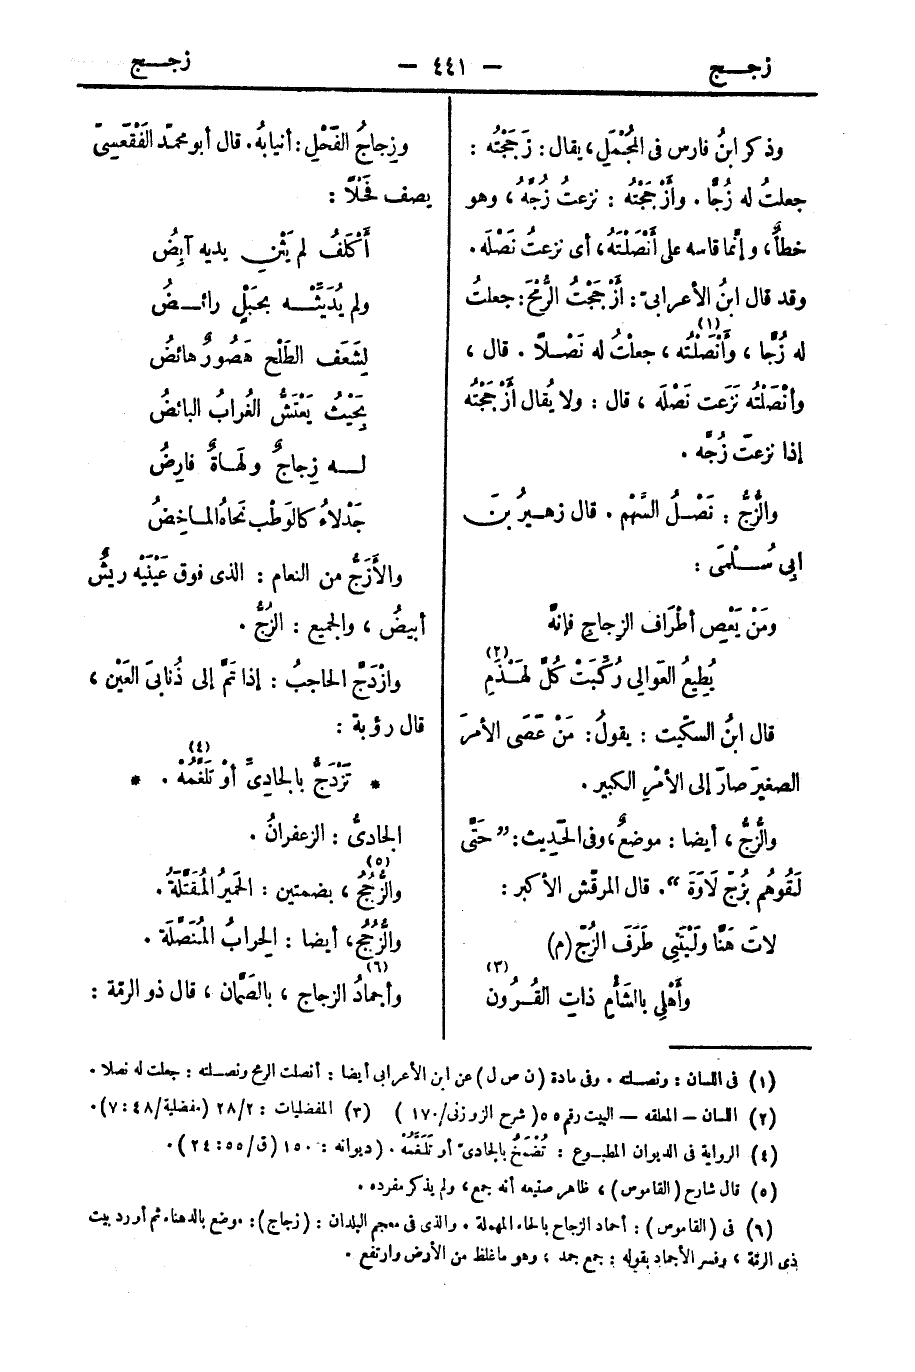 زجـــج — ٤٤١ — زجـــج
وذكر ابنُ فارس فى المُجْمَلِ، يقال: زَجَجْتُه :
جعلتُ له زُجًّا . وأَزْجَجْتُه : نزعتُ زُجَّهُ ، وهو
خطأٌ، وإنَّما قاسه على أَنْصَلْتَهُ، أى نزعتُ نَصْلَه .
وقد قال ابنُ الأعرابىّ: أَزْجَجْتُ الرُّمْحَ: جعلتُ
له زُجًّا ، وأَنْصَلْتُه(١) ، جعلْتُ له نَصْـلاً . قال ،
وأنْصَلْتُه نَزَعت نَصْلَه ، قال : ولا يُقال أَزْجَجْتُه
إذا نزعتَ زُجَّه .
والزُّجُّ : نَصْـلُ السَّهْم . قال زهـيرُ بنُ
أبى سُـــلْمَى :
ومَنْ يَعْصِ أطْرَاف الزِجاجِ فإنهُ
يُطِيعُ العَوالِى رُكِّبَتْ كُلَّ لَهْـذَمِ(٢)
قال ابنُ السكّيت : يقولُ: مَنْ عَصَى الأمرَ
الصغيرَ صارَ إلى الأمْرِ الكبير .
والزُّجُّ ، أيضا : موضعٌ، وفى الحَديث: ” حَتَّى
لَقُوهُم بُزجّ لَاوَةَ “. قال المرقّش الأكبر :
لاتَ هَنَّا ولَيْتَنِى طَرَفَ الزُجّ (م)
وأَهْلِى بالشَّأْمِ ذاتِ القُــرُون(٣)
وزِجاجُ الفَحْل: أنيابهُ. قال أبو محمّد الفَقْعَسِىّ
يصف فَحْلًا :
أَكْلَفُ لم يَثْنِ يديه آبِضُ
ولم يُدَيِّثْــه بِحَبْلٍ رائــضُ
لِشَعَف الطَلْح هَصُورٌ هائضُ
بِحَيْثُ يَعْتَشُّ الغُرابُ البائضُ
لـــه زِجاجٌ ولَهَاةٌ فارِضُ
جَدْلاءُ كالوَطْب نَحاهُ الماخِضُ
والأَزَجُّ من النعام : الذى فوق عَيْنَيْه ريشٌ
أبيضُ ، والجميع : الزُجُّ .
وازْدَجَّ الحاجبُ : إذا تَمَّ إلى ذُنابَى العَيْن ،
قال رؤبة :
* تَزْدَجُّ بالجادِىَّ أوْ تَلَغَّمُهْ(٤) . *
الجادىُّ : الزعفرانُ .
والزُّجُجُ(٥) ، بضمتين : الحَميرُ المُقَتَّلَةُ .
والزُّجُجُ، أيضا : الحِرابُ المُنَصَّلَة .
وأجمادُ الزجاج(٦) ، بالصَمَّان ، قال ذو الرمّة :
(١) فى اللسان : ونصلته . وفى مادة (ن ص ل) عن ابن الأعرابى أيضا : أنصلت الرمح ونصلته : جعلت له نصلا .
(٢) اللسان – المعلقه – البيت رقم ٥٥ (شرح الزوزنى/١٧٠ ) (٣) المفضليات : ٢٨/٢ (مفضلية/٤٨ : ٧).
(٤) الرواية فى الديوان المطبـوع : تُضْمَخُ بالجادىّ أو تَلَغَّمُهْ . (ديوانه : ١٥٠ (ق/٥٥ : ٢٤) .
(٥) قال شارح (القاموس) ، ظاهر صنيعه أنه جمع، ولم يذكر مفرده .
(٦) فى (القاموس) : أحماد الزجاج بالحاء المهملة . والذى فى معجم البلدان : (زجاج): موضع بالدهناء ثم أورد بيت
ذى الرمّة ، وفسر الأجماد بقوله : جمع جمد ، وهو ما غلظ من الأرض وارتفع .